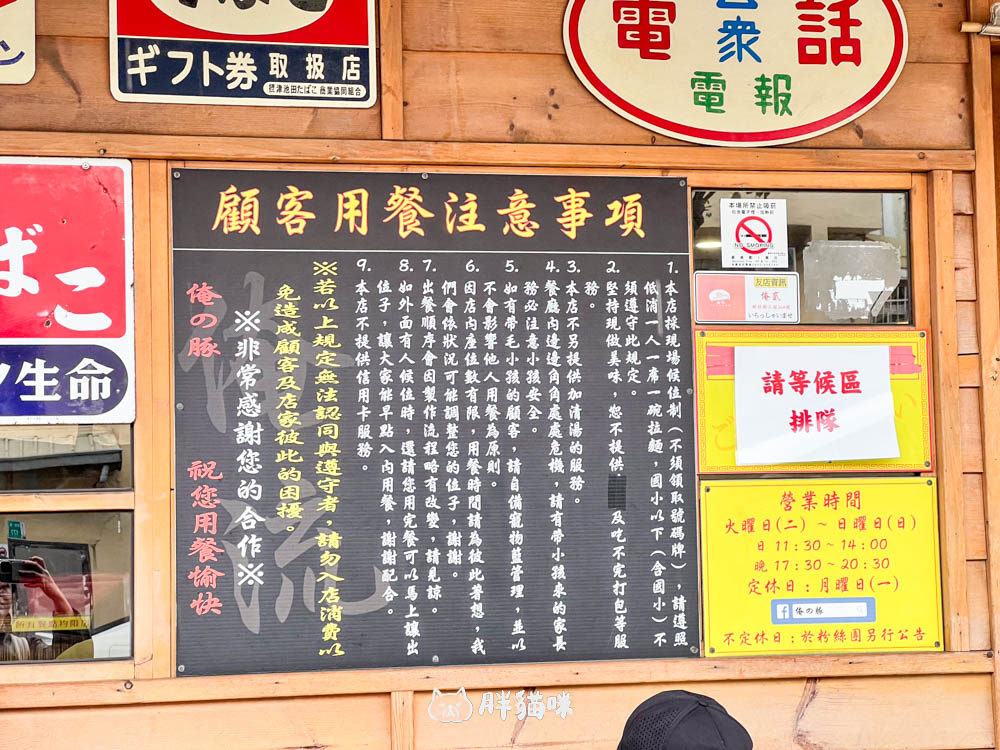 ギフト券 取扱店
摂津池田たばこ商業協同組合
電 公衆 話
電報
ばこ
ソ生命
顧客用餐注意事項
1. 本店採現場候位制(不須領取號碼牌),請遵照
低消一人一席一碗拉麵,國小以下(含國小)不
須遵守此規定。
2. 堅持現做美味,恕不提供 及吃不完打包等服
務。
3. 本店不另提供加清湯的服務。
4. 餐廳內邊邊角角處處危機,請有帶小孩來的家長
務必注意小孩安全。
5. 如有帶毛小孩的顧客,請自備寵物籃管理,並以
不會影響他人用餐為原則。
6. 因店內座位數有限,用餐時間請為彼此著想,我
們會依狀況可能調整您的位子,謝謝。
7. 出餐順序會因製作流程略有改變,請見諒。
8. 如外面有人候位時,還請您用完餐可以馬上讓出
位子,讓大家能早點入內用餐,謝謝配合。
9. 本店不提供信用卡服務。
※若以上規定無法認同與遵守者,請勿入店消費以
免造成顧客及店家彼此的困擾。
※非常感謝您的合作※
俺の豚 祝您用餐愉快
俺流
本場所禁止吸菸
NO SMOKING
友店資訊
俺貳
いらっしゃいませ
請等候區
排隊
營業時間
火曜日(二) ~ 日曜日(日)
日 11:30~14:00
晚 17:30~20:30
定休日:月曜日(一)
f 俺の豚
不定休日:於粉絲團另行公告
胖貓咪